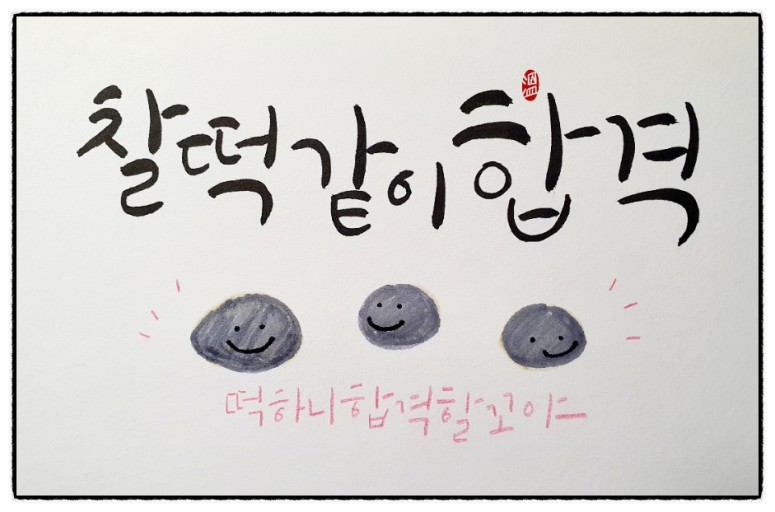 찰떡같이합격
떡하니합격할꼬야~